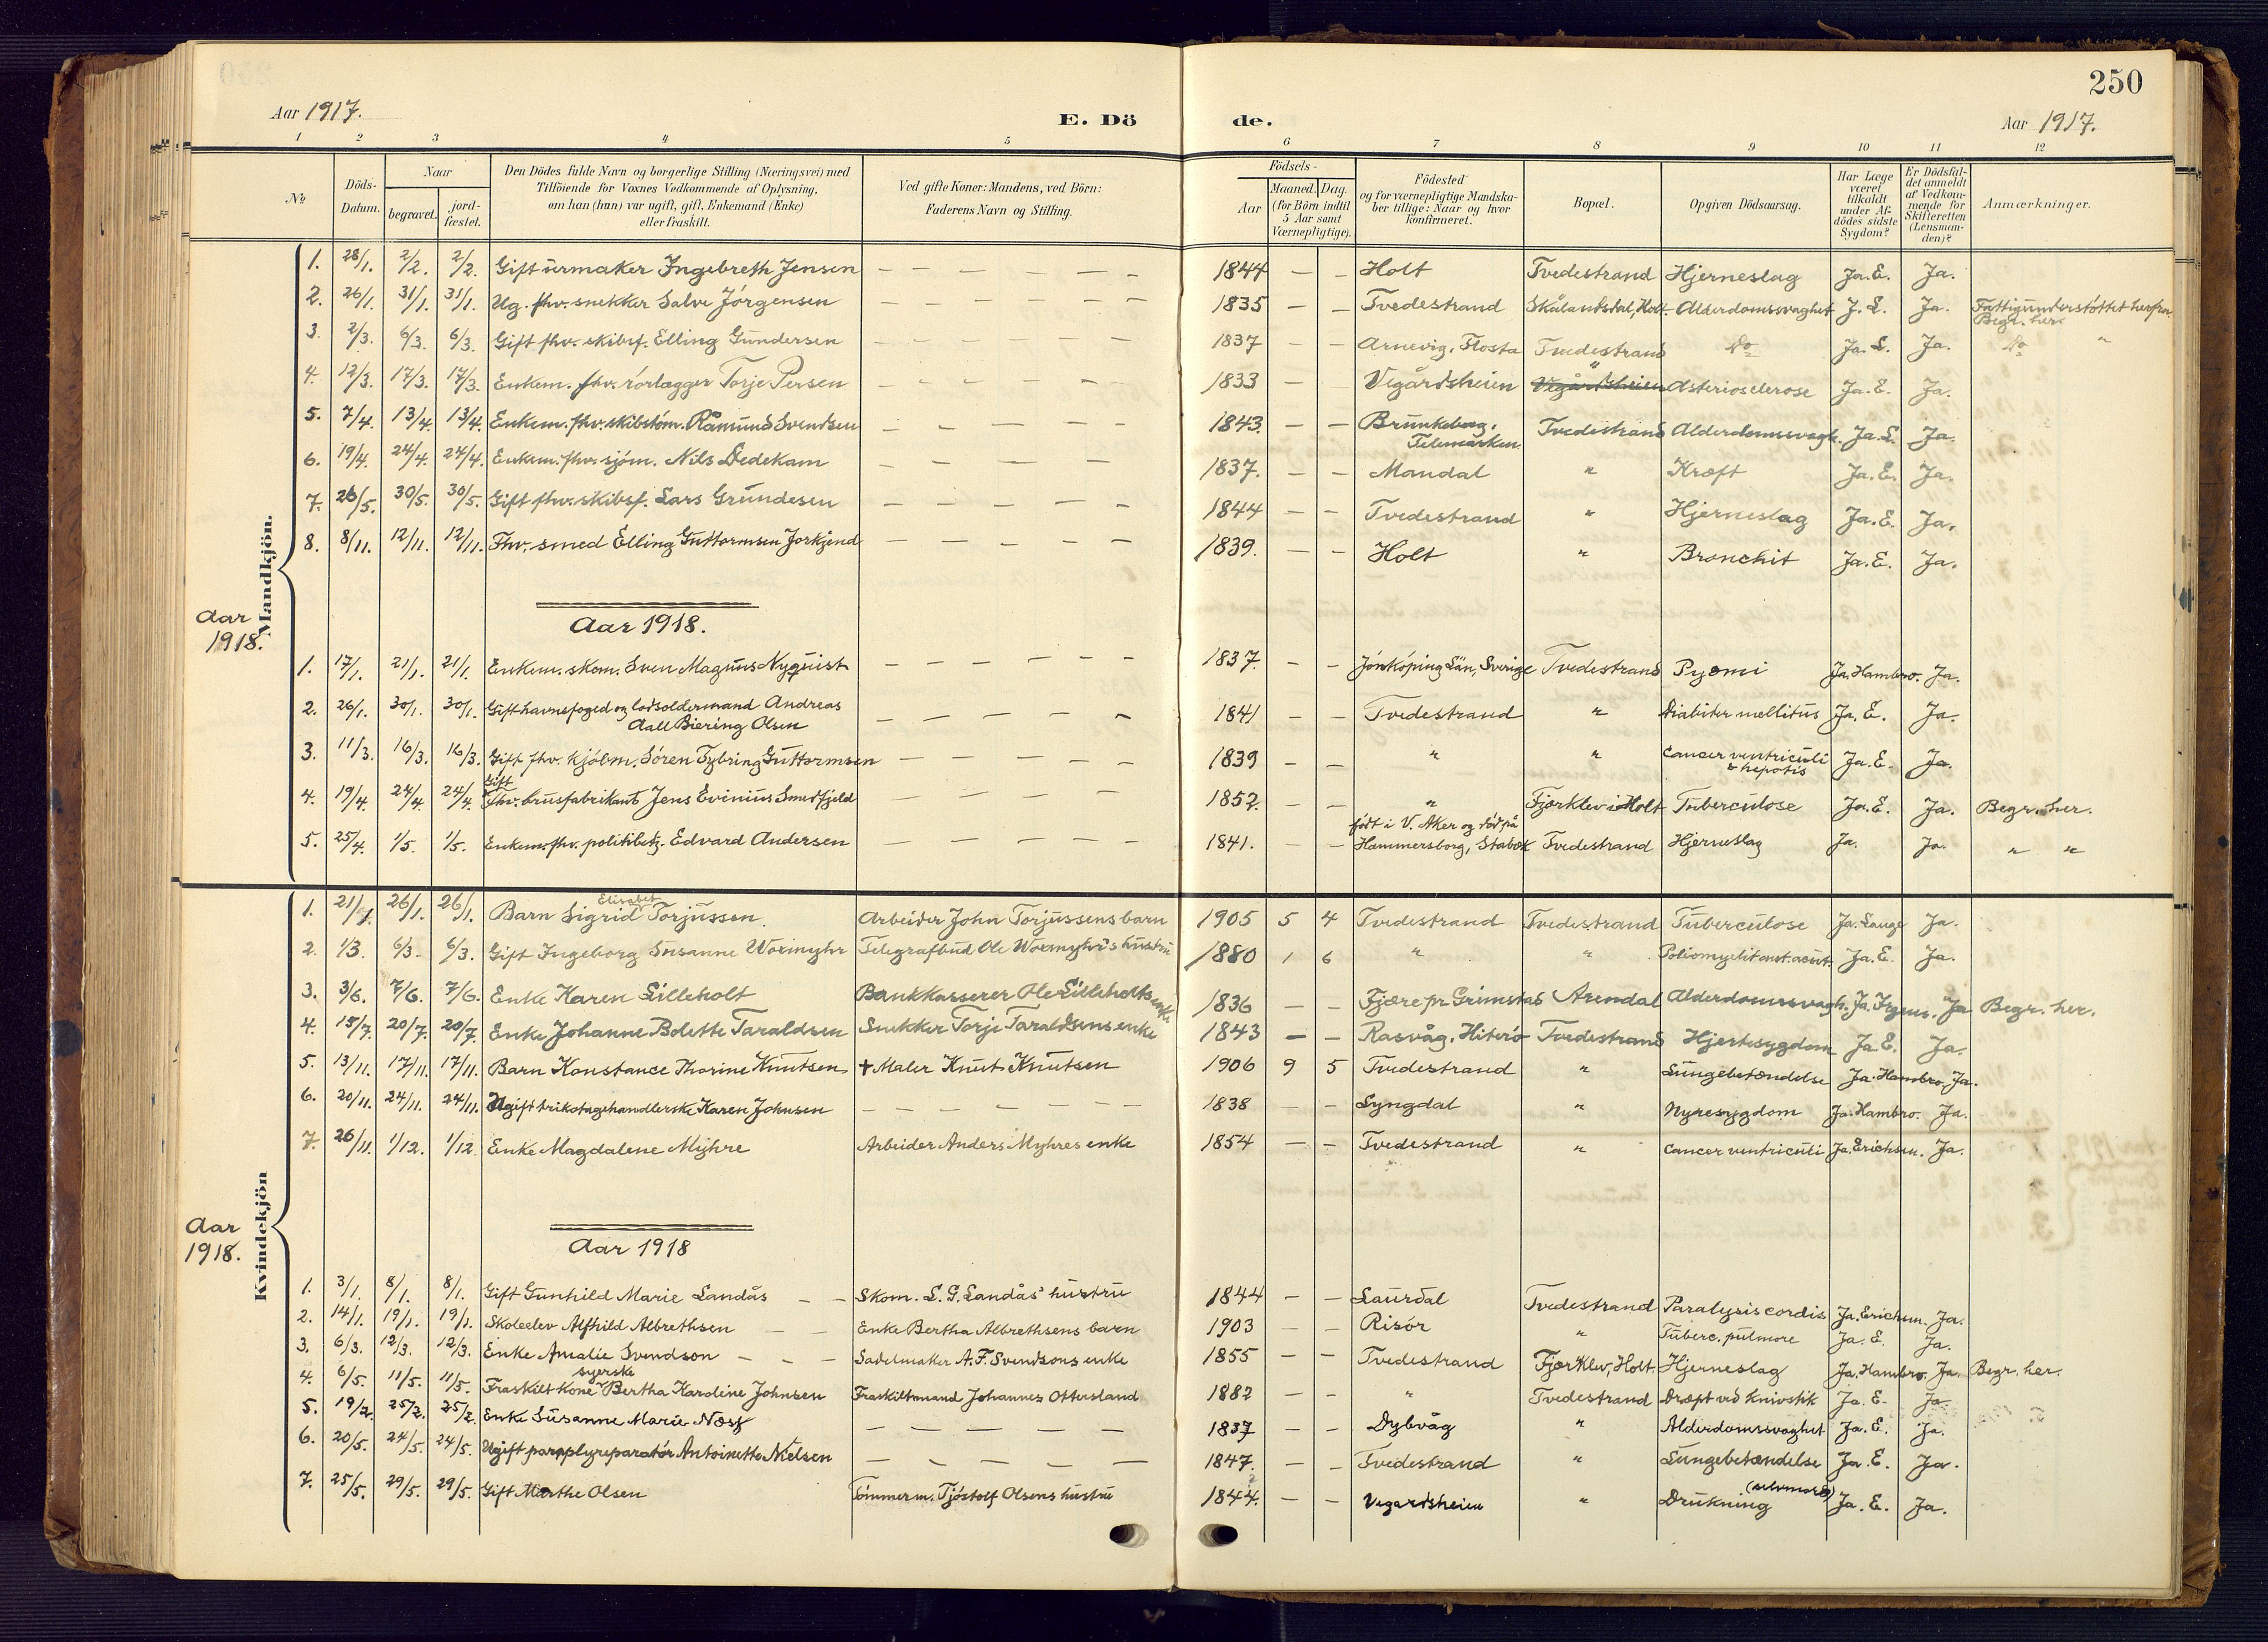 250
Aar 1917.
E. Döde.
Aar 1917.
1 2 3 4 5 6 7 8 9 10 11 12
No
Döds-Datum.
Naar
begravet.
jordfæstet.
Den Dödes fulde Navn og borgerlige Stilling (Næringsvei) med
Tilföiende for Voxnes Vedkommende af Oplysning,
om han (hun) var ugift, gift, Enkemand (Enke)
eller fraskilt.
Ved gifte Koner: Mandens, ved Börn:
Faderens Navn og Stilling.
Födsels-
Aar
Maaned. Dag.
(for Börn indtil
5 Aar samt
Værnepligtige).
Födested
og for værnepligtige Mandska-
ber tillige: Naar og hvor
konfirmeret.
Bopæl.
Opgiven Dödsaarsag.
Har Læge
været
tilkaldt
under Af-
dödes sidste
Sygdom?
Er Dödsfal-
det anmeldt
af Vedkom-
mende for
Skifteretten
(Lensman-
den)?
Anmærkninger.
Mandkjön.
1. 28/1. 2/2. 2/2. Gift urmaker Ingebreth Jensen — — — — — 1844 — — Holt Tvedestrand Hjerneslag Ja. E. Ja.
2. 26/1. 31/1. 31/1. Ug. fhv. snekker Salve Jörgensen — — — — — 1835 — — Tvedestrand Skålandsdal, Holt. Alderdomssvaghet J. L. Ja. Fattigunderstøttet herfra. Begr. her.
3. 2/3. 6/3. 6/3. Gift fhv. skibsf. Elling Gundersen — — — — — 1837 — — Arnevig, Flosta Tvedestrand Do Ja. L. Ja. Do "
4. 12/3. 17/3. 17/3. Enkem. fhv. rörlægger Torje Persen — — — — — 1833 — — Vegårdsheien " Vegårdsheien Asteriosclerose Ja. E. Ja.
5. 7/4. 13/4. 13/4. Enkem. fhv. skibstöm. Råmund Svendsen — — — — — 1843. — — Brunkeberg, Telemarken Tvedestrand Alderdomssvagh. Ja. L. Ja.
6. 19/4. 24/4. 24/4. Enkem. fhv. sjöm. Nils Dedekam — — — — — 1837. — — Mandal " Kræft Ja. E. Ja.
7. 26/5. 30/5. 30/5. Gift fhv. skibsf. Lars Grundesen — — — — — 1844 — — Tvedestrand " Hjerneslag Ja. E. Ja.
8. 8/11. 12/11. 12/11. Fhv. smed Elling Guttormsen Jorkjend — — — — — 1839. — — Holt " Bronchit Ja. E. Ja.
Aar 1918.
Aar 1918.
1. 17/1. 21/1. 21/1. Enkem. skom. Sven Magnus Nyquist — — — — — 1837. — — Jönköping Län, Sverige Tvedestrand Pyœmi Ja. Hambro. Ja.
2. 26/1. 30/1. 30/1. Gift havnefoged og lodsoldermand Andreas
Aall Biering Olsen — — — — — 1841 — — Tvedestrand " Diabiter mellitus Ja. E. Ja.
3. 11/3. 16/3. 16/3. Gift fhv. kjöbm. Sören Tybring Guttormsen — — — — — 1839 — — " " Cancer ventriculi & hepatis Ja. E. Ja.
4. 19/4. 24/4. 24/4. Gift Fhv. brusfabrikant Jens Evinius Smedfjeld — — — — — 1852. — — " Fjærklev i Holt Tuberculose Ja. E. Ja. Begr. her.
5. 25/4. 1/5. 1/5. Enkem. fhv. politibetj. Edvard Andersen — — — — — 1841. — — født i V. Aker og död på
Hammersborg, Stabæk Tvedestrand Hjerneslag Ja. Ja. " "
Kvindekjön
1. 21/1. 26/1. 26/1. Barn Sigrid Elisabet Torjussen. Arbeider John Torjussens barn 1905 5 4 Tvedestrand Tvedestrand Tuberculose Ja. Lauge Ja.
2. 1/3. 6/3. 6/3. Gift Ingeborg Susanne Woxmyhr Telegrafbud Ole Woxmyhr's hustru 1880 1 6 " " Poliomyelit ant. acut. Ja. E. Ja.
3. 3/6. 7/6. 7/6. Enke Karen Lilleholt Bankkasserer Ole Lilleholts enke 1836 — — Fjære pr. Grimstad Arendal Alderdomssvagh. Ja. Ja Begr. her.
4. 15/7. 20/7. 20/7. Enke Johanne Bolette Taraldsen Snekker Torje Taraldsens enke 1843 — — Rasvåg, Hiterö Tvedestrand Hjertesygdom Ja E. Ja.
5. 13/11. 17/11. 17/11. Barn Konstance Thorine Knutsen ✝ Maler Knut Knutsen 1906 9 5 Tvedestrand " Lungebetændelse Ja. Hambro. Ja.
6. 20/11. 24/11. 24/11. Ugift trikotagehandlerske Karen Johnsen — — — — — — 1838 — — Lyngdal " Nyresygdom Ja. Hambro. Ja.
7. 26/11. 1/12. 1/12. Enke Magdalene Myhre Arbeider Anders Myhres enke 1854 — — Tvedestrand " Cancer ventriculi Ja. Erichsen. Ja.
Aar 1918.
Aar 1918
1. 3/1. 8/1. 8/1. Gift Gunhild Marie Landås — — Skom. L. G. Landås' hustru 1844 — — Laurdal Tvedestrand Paralysis cordis Ja. Erichsen. Ja.
2. 14/1. 19/1. 19/1. Skoleelev Alfhild Albrethsen — — Enke Bertha Albrethsens barn 1903 — — Risör " Tuberc. pulmore Ja. E. Ja.
3. 6/3. 12/3. 12/3. Enke Amalie Svendson — — — Sadelmaker A. F. Svendsons enke 1855 — — Tvedestrand Fjærklev, Holt. Hjerneslag Ja. Hambro. Ja. Begr. her.
4. 6/5. 11/5. 11/5. Fraskilt kone syerske Bertha Karoline Johnsen Fraskilt mand Johannes Ottersland 1882 — — " Tvedestrand Dræpt ved knivstik Ja. E. Ja.
5. 19/2. 25/2. 25/2. Enke Susanne Marie Næss — — — — — 1837 — — Dybvåg " Alderdomssvaghet Ja. E. Ja.
6. 20/5. 24/5. 24/5. Ugift parapplyreparatör Antoinette Nielsen — — — — — 1847. — — Tvedestrand " Lungebetændelse Ja. E. Ja.
7. 25/5. 29/5. 29/5. Gift Marthe Olsen Tömmerm. Tjöstolf Olsens hustru 1844. — — Vegardsheien " Drukning (selvmord) Ja. E. Ja.